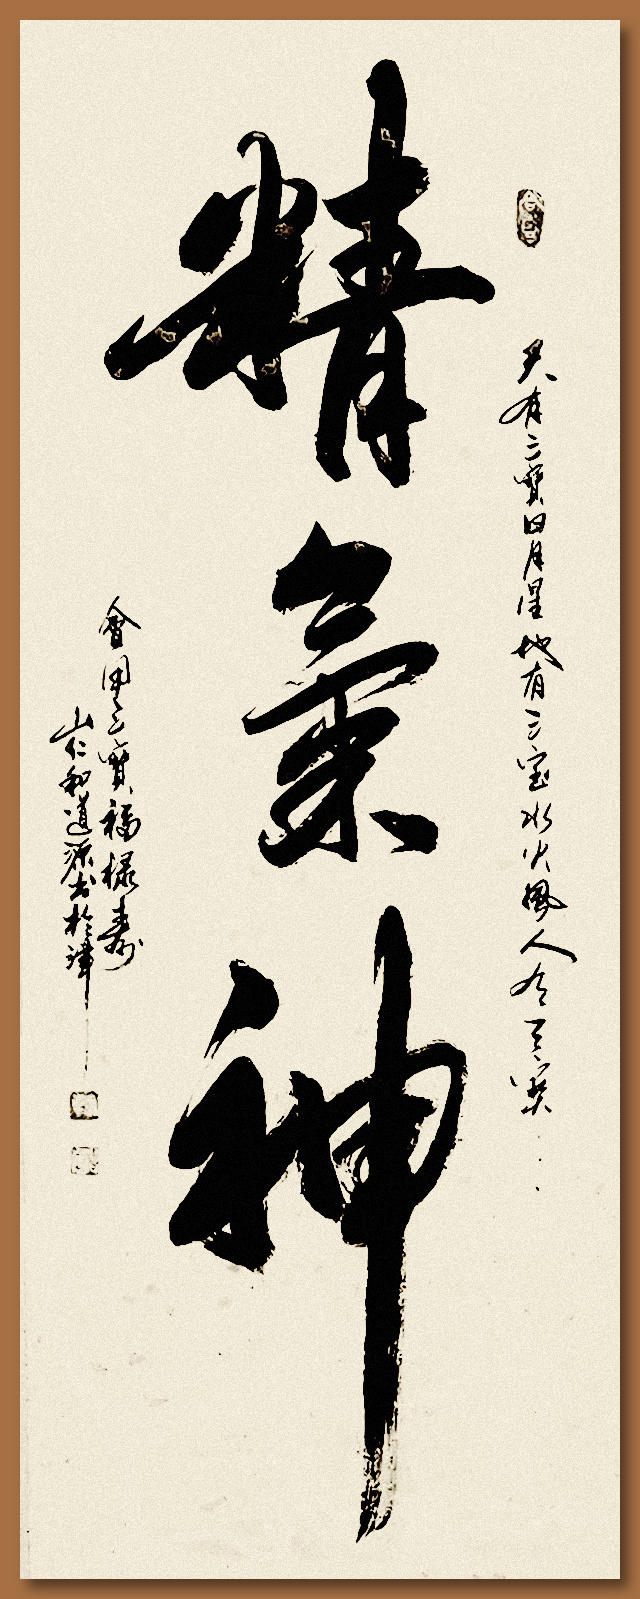 天有三寶日月星地有三宝水火風人有三寶
精氣神
會用三寶福祿壽
山仁和道源书於